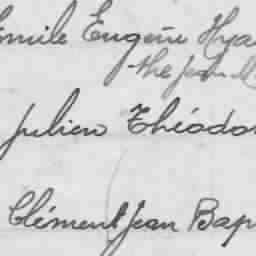 Emile Eugène Hya
the Jean M
Julien Théodo
Clément Jean Bap